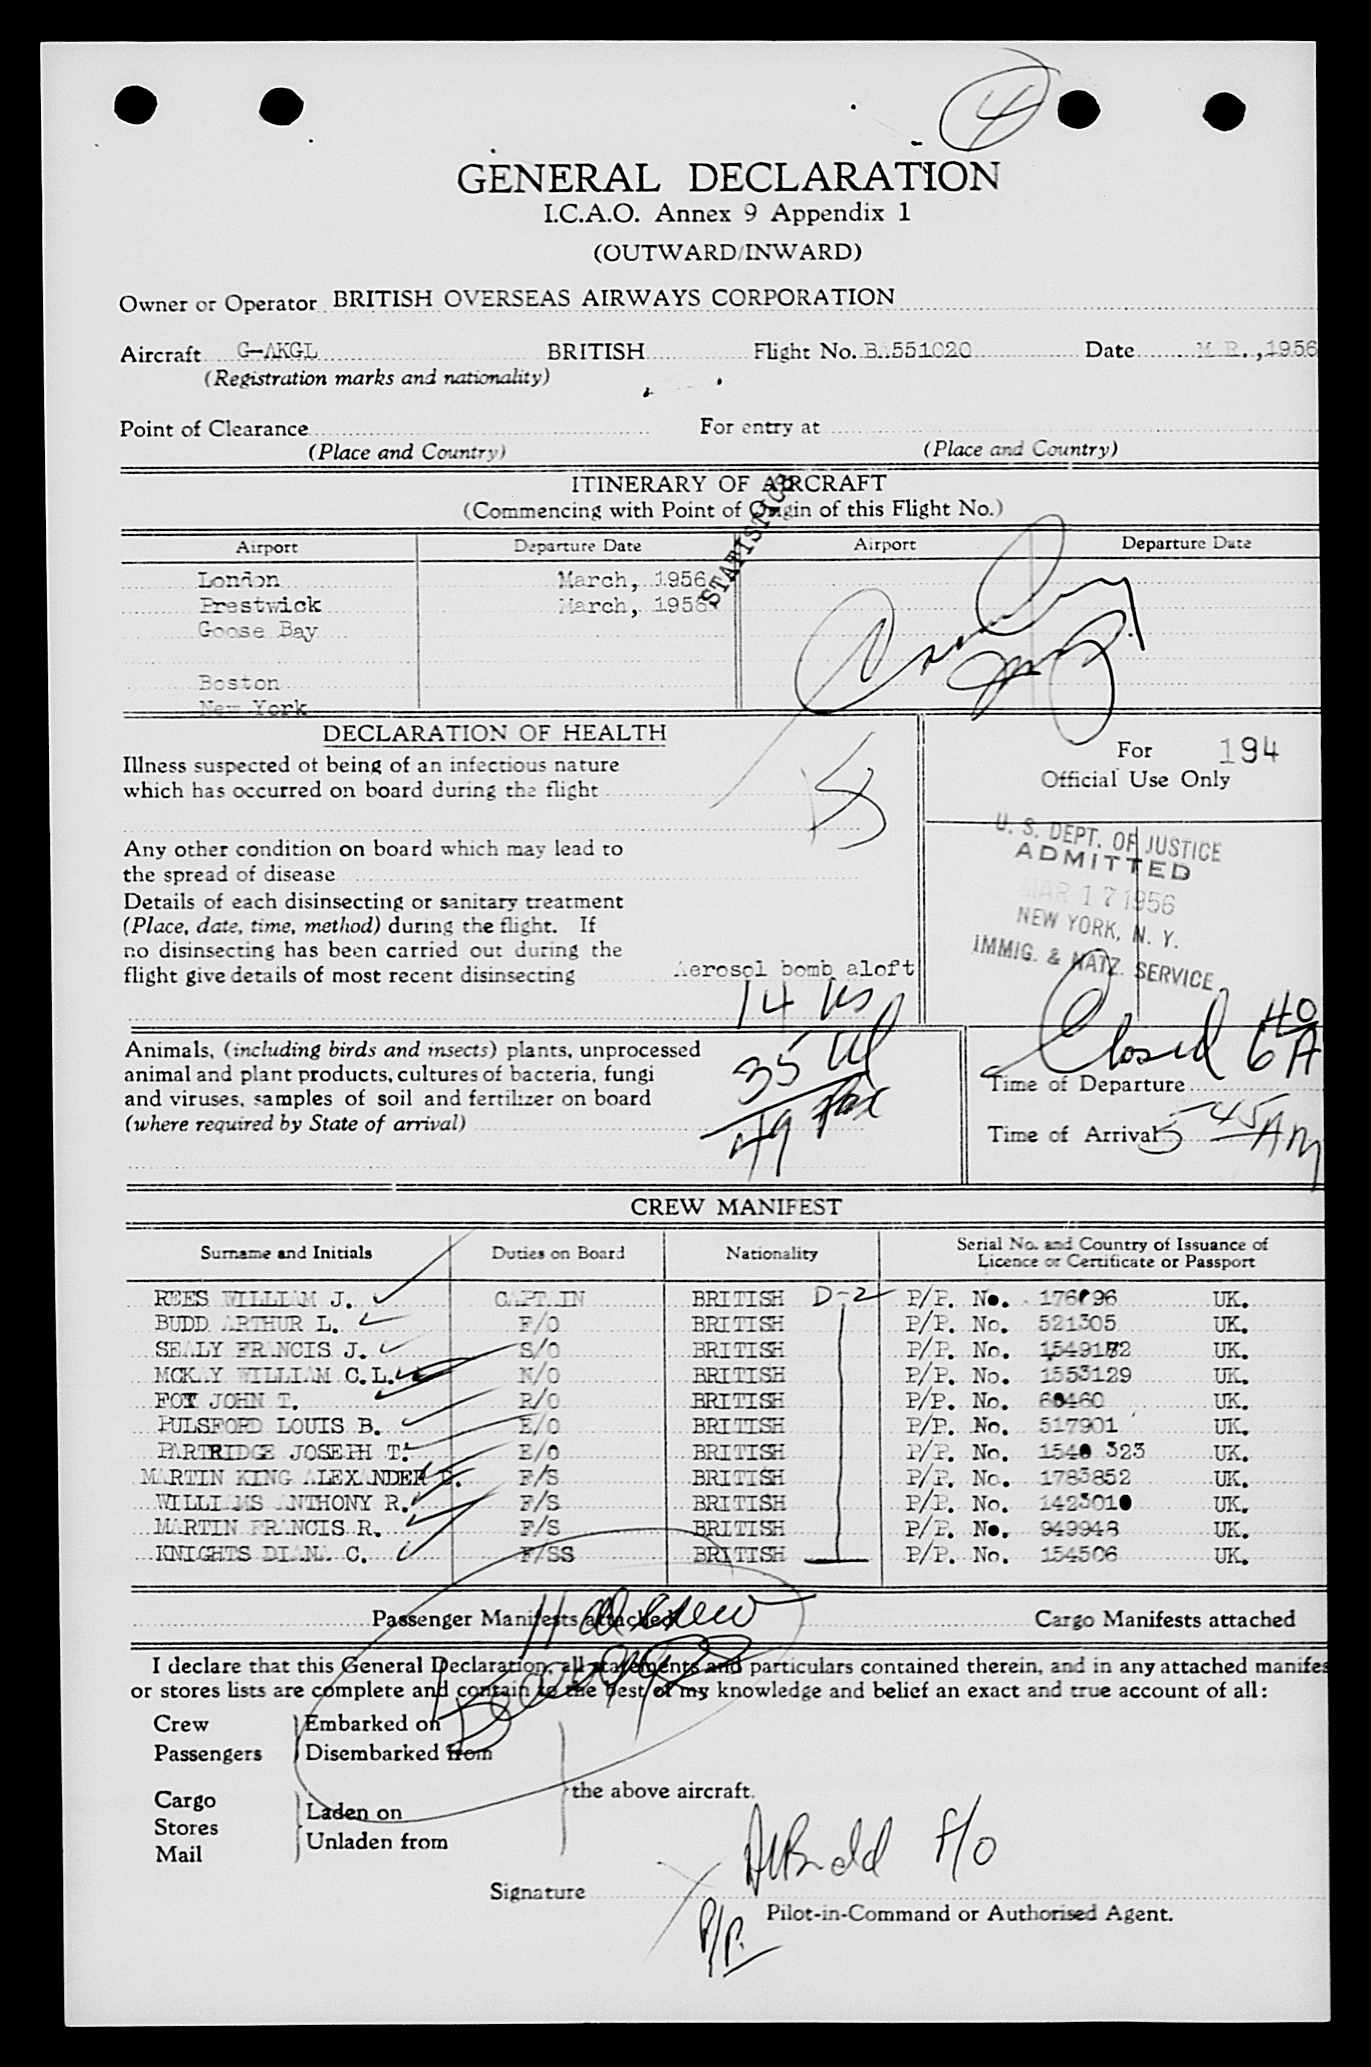 4
GENERAL DECLARATION
I.C.A.O. Annex 9 Appendix 1
(OUTWARD/INWARD)
Owner or Operator BRITISH OVERSEAS AIRWAYS CORPORATION
Aircraft G-AKGL BRITISH Flight No. BA551020 Date M R., 1956
(Registration marks and nationality)
Point of Clearance For entry at
(Place and Country) (Place and Country)
ITINERARY OF AIRCRAFT
(Commencing with Point of Origin of this Flight No.)
STATISTICS
Airport Departure Date Airport Departure Date
London March, 1956
Prestwick March, 1956
Goose Bay
Boston
New York
DECLARATION OF HEALTH
For 194
Official Use Only
Illness suspected of being of an infectious nature
which has occurred on board during the flight
Any other condition on board which may lead to
the spread of disease
U. S. DEPT. OF JUSTICE
ADMITTED
MAR 17 1956
NEW YORK, N. Y.
IMMIG. & NATZ. SERVICE
Details of each disinsecting or sanitary treatment
(Place, date, time, method) during the flight. If
no disinsecting has been carried out during the
flight give details of most recent disinsecting Aerosol bomb aloft
14 us
35 al
49 Pax
Closed 6 40 A
Animals, (including birds and insects) plants, unprocessed
animal and plant products, cultures of bacteria, fungi
and viruses, samples of soil and fertilizer on board
(where required by State of arrival)
Time of Departure
Time of Arrival 5 45 AM
CREW MANIFEST
Surname and Initials Duties on Board Nationality Serial No. and Country of Issuance of
Licence or Certificate or Passport
REES WILLIAM J. CAPTAIN BRITISH D-2 P/P. No. 176096 UK.
BUDD ARTHUR L. F/O BRITISH P/P. No. 521305 UK.
SEALY FRANCIS J. S/O BRITISH P/P. No. UK.
MCKAY WILLIAM C.L. N/O BRITISH P/P. No. 1553129 UK.
FOX JOHN T. R/O BRITISH P/P. No. UK.
PULSFORD LOUIS B. E/O BRITISH P/P. No. 517901 UK.
PARTRIDGE JOSEPH T. E/O BRITISH P/P. No. UK.
MARTIN KING ALEXANDER D. F/S BRITISH P/P. No. 1783852 UK.
WILLIAMS ANTHONY R. F/S BRITISH P/P. No. 1423010 UK.
MARTIN FRANCIS R. F/S BRITISH P/P. No. 949948 UK.
KNIGHTS DIANA C. F/SS BRITISH P/P. No. 154506 UK.
Passenger Manifests attached Cargo Manifests attached
11 al crew
I declare that this General Declaration, all statements and particulars contained therein, and in any attached manifes
or stores lists are complete and contain to the best of my knowledge and belief an exact and true account of all:
Crew Embarked on
Passengers Disembarked from
the above aircraft.
Cargo Laden on
Stores
Mail Unladen from
Signature ALBudd F/O
P/P. Pilot-in-Command or Authorised Agent.